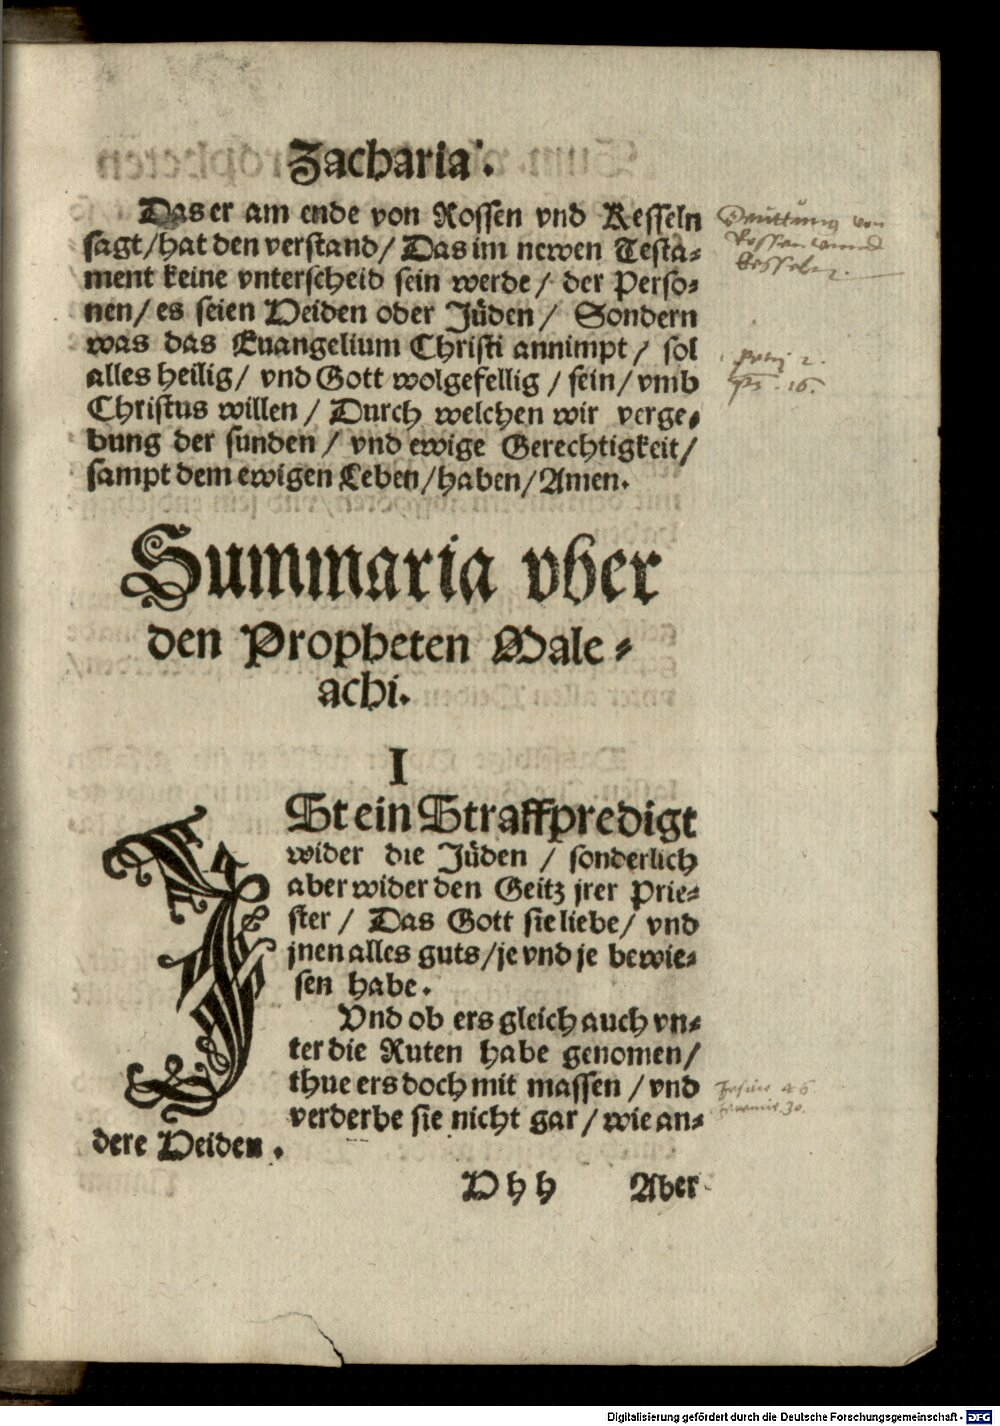 Zacharia.
Das er am ende von Rossen vnd Kesseln
sagt/hat den verstand/ Das im newen Testa⸗
ment keine vnterscheid sein werde/ der Perso⸗
nen/ es seien Heiden oder Jüden/ Sondern
was das Euangelium Christi annimpt/ sol
alles heilig/ vnd Gott wolgefellig/ sein/ vmb
Christus willen/ Durch welchen wir verge⸗
bung der sunden/ vnd ewige Gerechtigkeit/
sampt dem ewigen Leben/haben/ Amen.
Deuttung von
Rossen vnnd
Kesseln.
Summaria vber
den Propheten Male⸗
achi.
I
JSt ein Straffpredigt
wider die Jüden / sonderlich
aber wider den Geitz jrer Prie⸗
ster / Das Gott sie liebe/ vnd
jnen alles guts/je vnd je bewie⸗
sen habe.
Vnd ob ers gleich auch vn⸗
ter die Ruten habe genomen/
thue ers doch mit massen / vnd
verderbe sie nicht gar/ wie an⸗
dere Heiden.
46
30.
H h h Aber
Digitalisierung gefördert durch die Deutsche Forschungsgemeinschaft - DFG